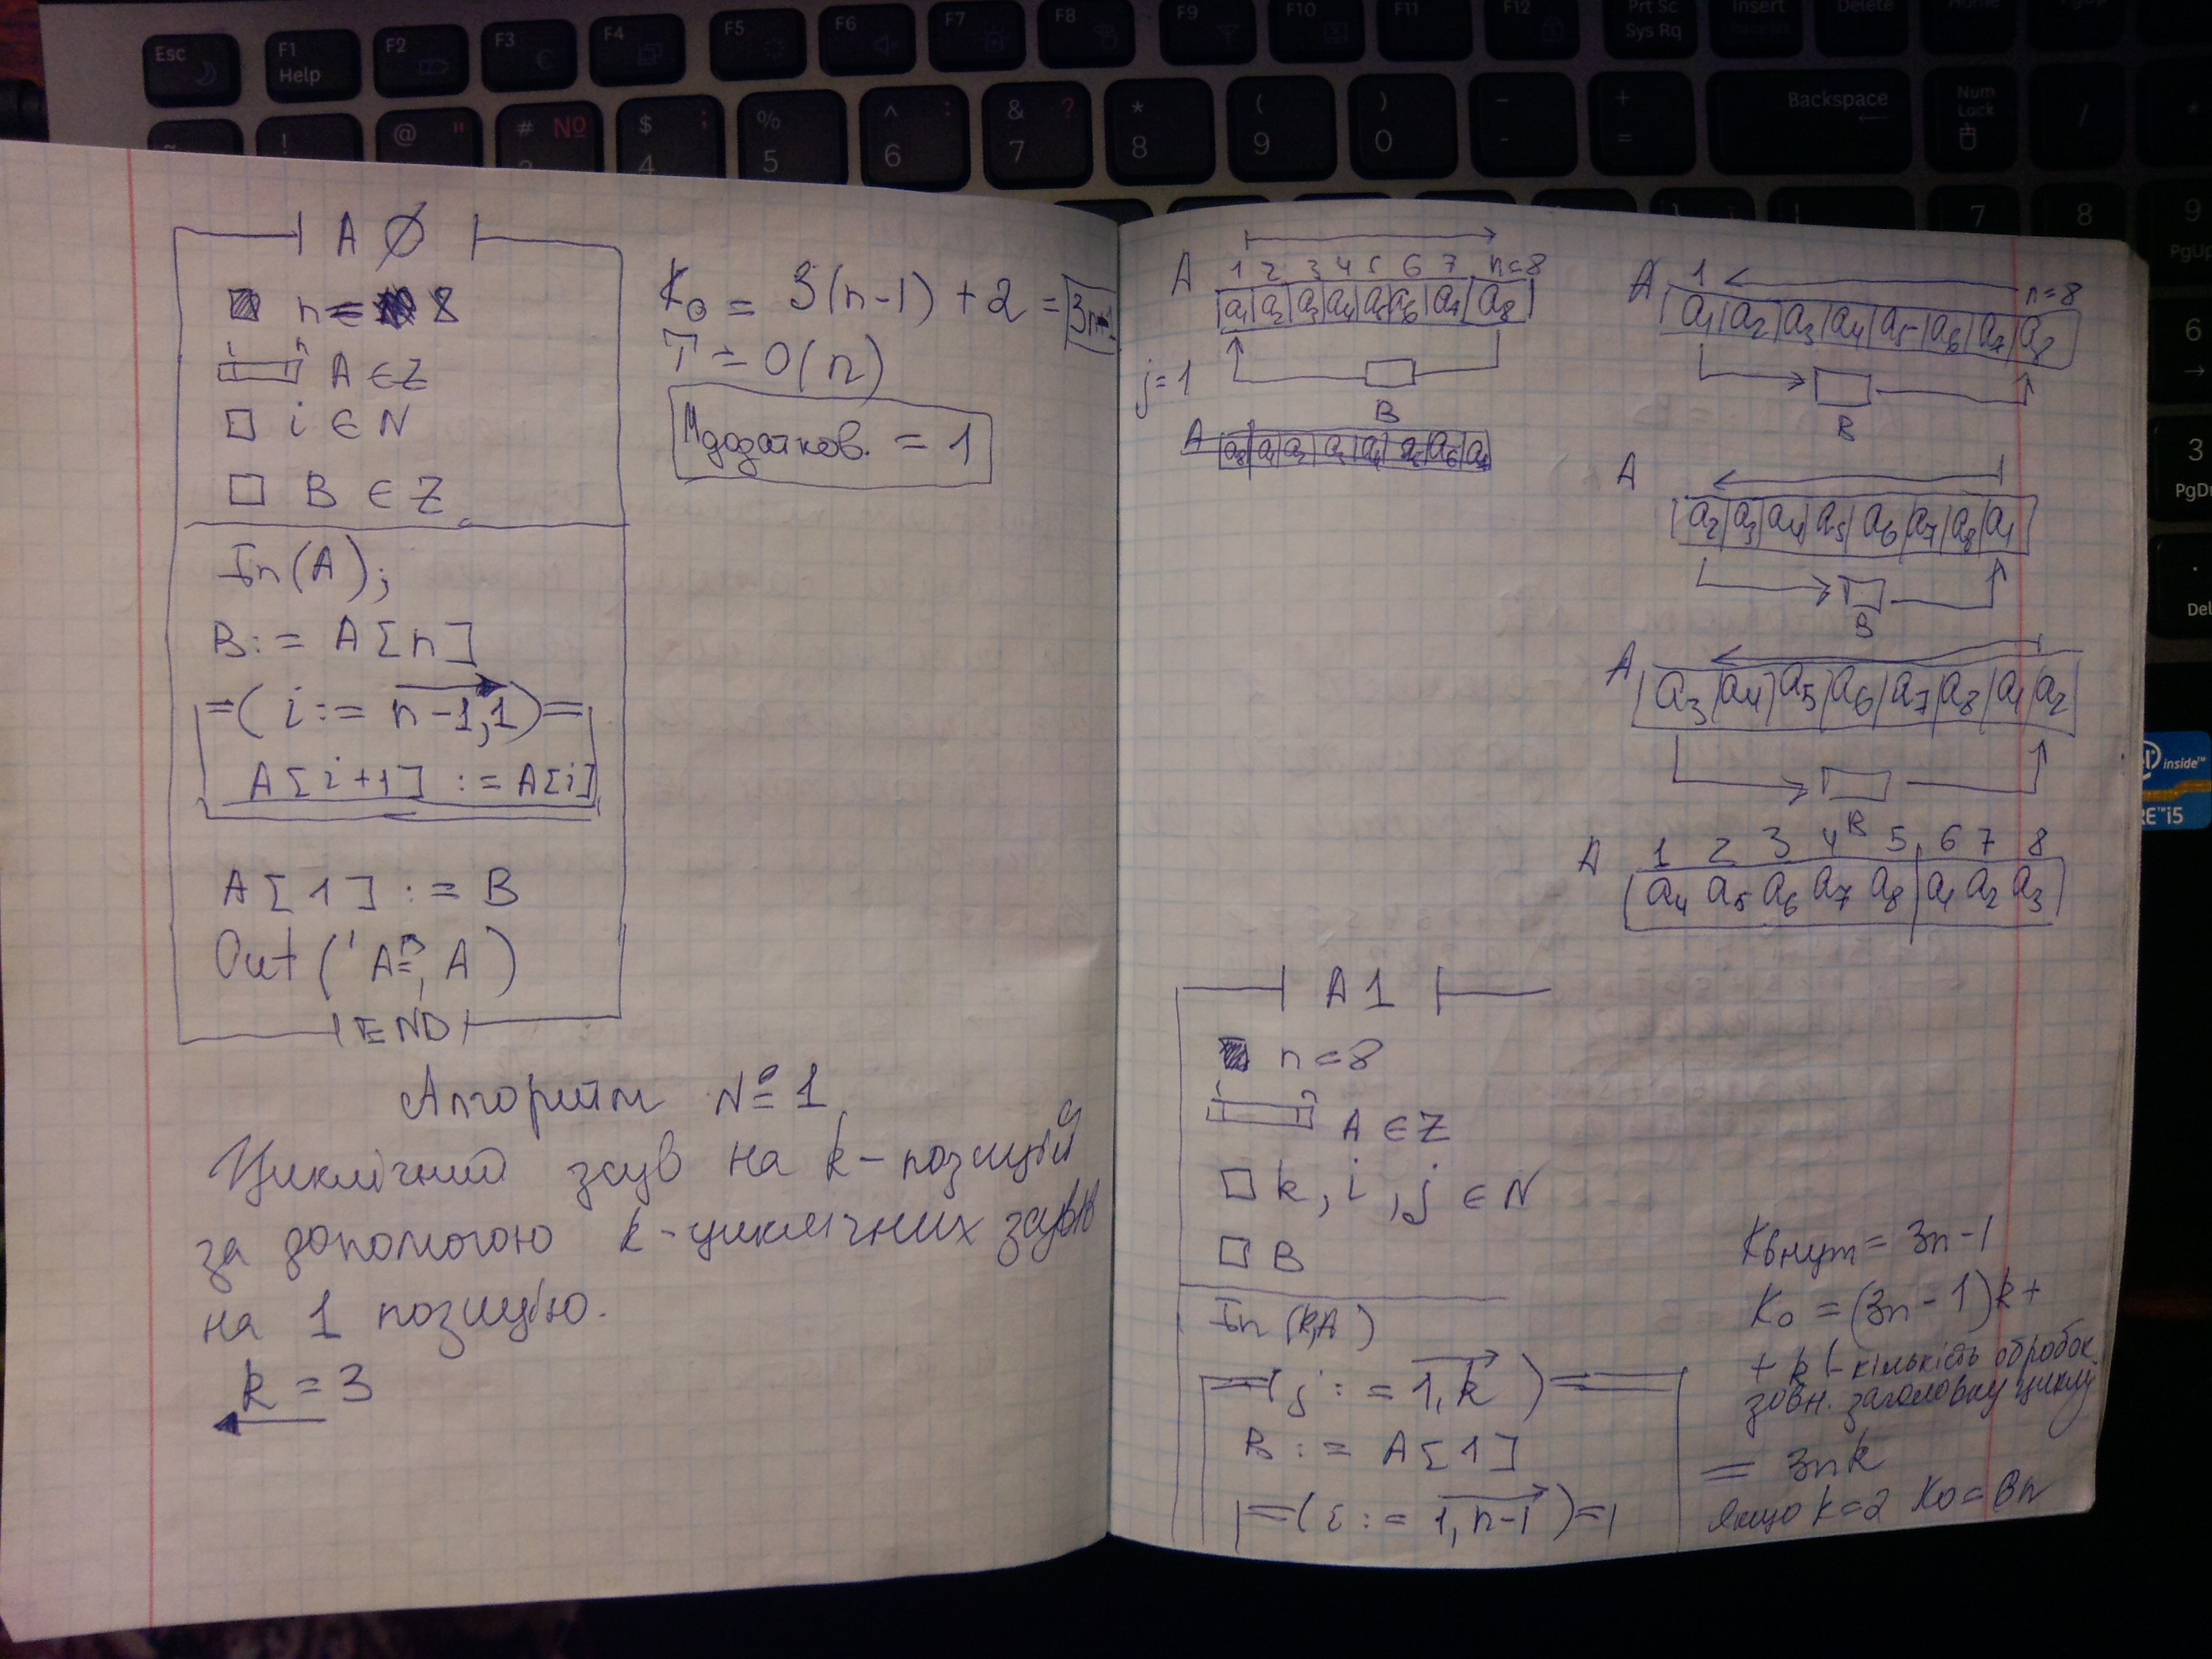 Esc F1 F2 F3 F4 F5 F6 F7 F8 F9 F10 F11 F12 Prt Sc Insert Delete
Help Sys Rq
! @ " # № $ ; % ^ : & ? * ( ) - + Backspace Num Lock /
4 5 6 7 8 9 0 - =
7 8 9
PgUp
6
3
PgD
Del
inside™
RE™i5
A Ø
n = 8
1 n
A ∈ Z
i ∈ N
B ∈ Z
In(A);
B := A[n]
=( i := n-1,1 )=
A[i+1] := A[i]
A[1] := B
Out('A=', A)
END
K₀ = 3(n-1) + 2 = 3n-1
T = O(n)
Mдодатков. = 1
Алгоритм №1
Циклічний зсув на k-позицій
за допомогою k-циклічних зсувів
на 1 позицію.
k = 3
A 1 2 3 4 5 6 7 n=8
a₁ a₂ a₃ a₄ a₅ a₆ a₇ a₈
j=1
B
A a₈ a₁ a₂ a₃ a₄ a₅ a₆ a₇
A 1 n=8
a₁ a₂ a₃ a₄ a₅ a₆ a₇ a₈
B
A
a₂ a₃ a₄ a₅ a₆ a₇ a₈ a₁
B
A
a₃ a₄ a₅ a₆ a₇ a₈ a₁ a₂
B
A 1 2 3 4 5 6 7 8
a₄ a₅ a₆ a₇ a₈ a₁ a₂ a₃
A 1
n = 8
1 n
A ∈ Z
k, i, j ∈ N
B
In (k,A)
=( j := 1, k )=
B := A[1]
=( i := 1, n-1 )=
Kвнут = 3n-1
K₀ = (3n-1)k+
+ k (- кількість обробок
зовн. заголовку циклу
= 3nk
якщо k=2 K₀=6n